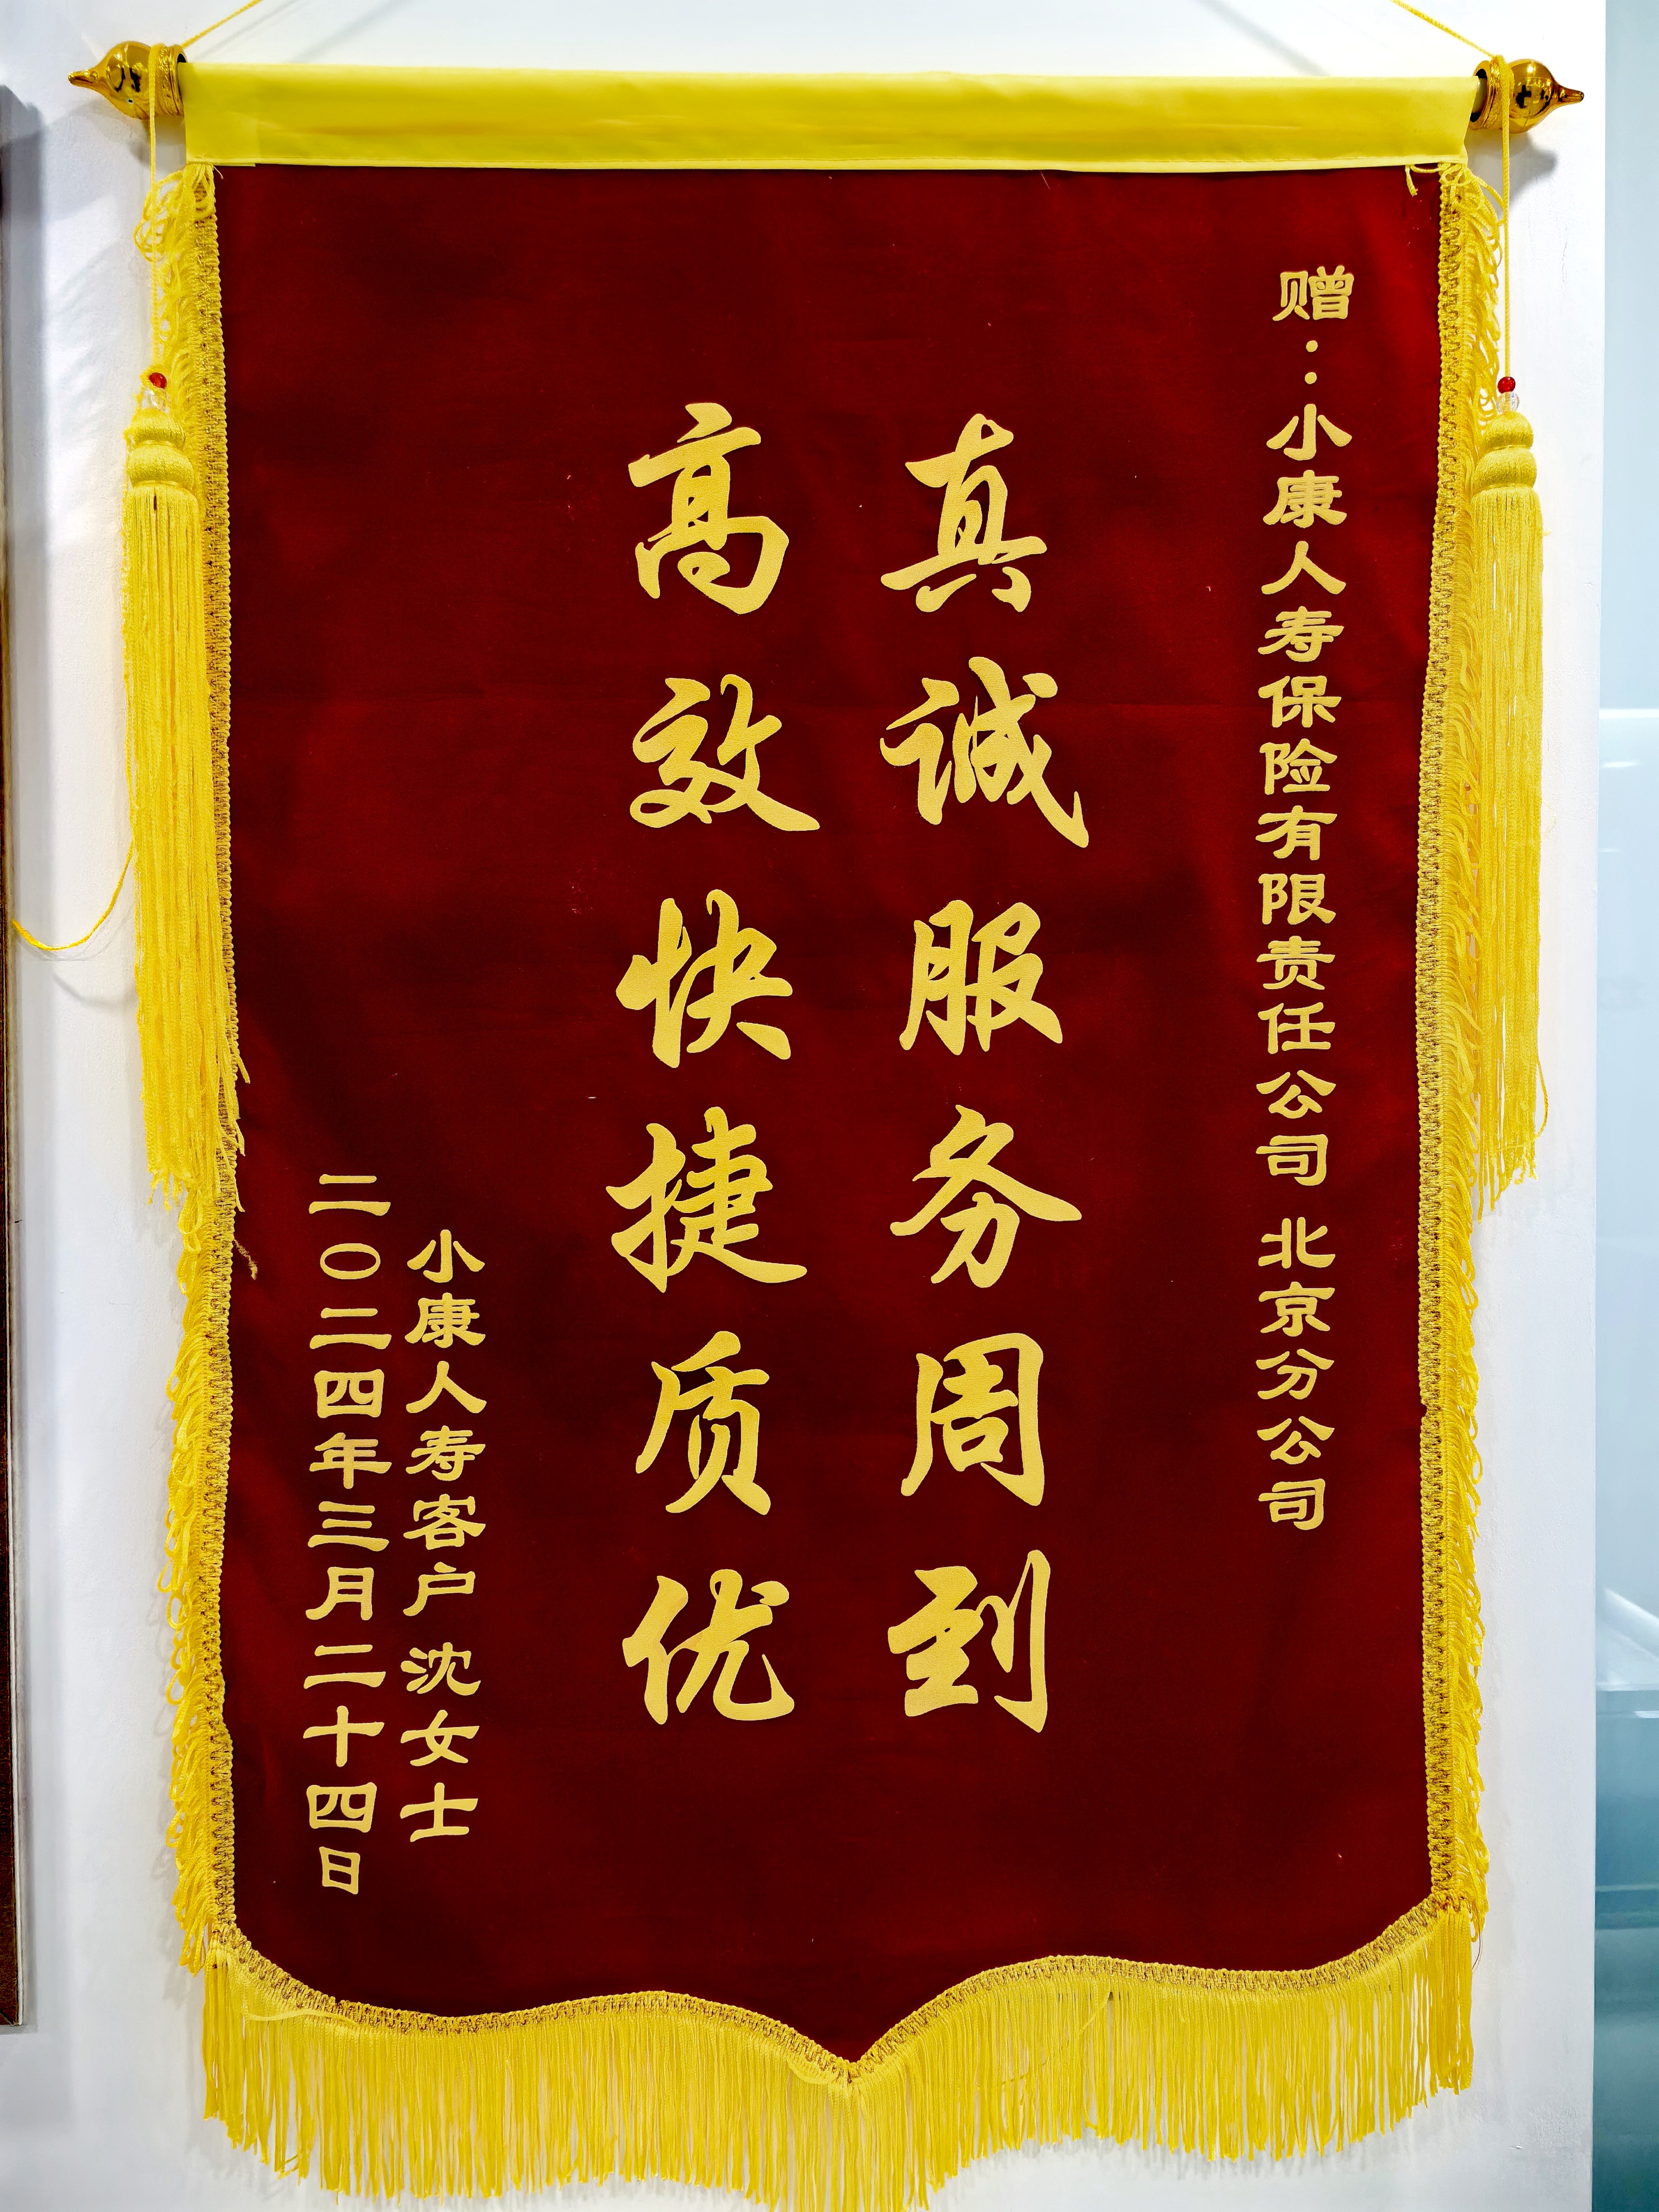 赠：小康人寿保险有限责任公司 北京分公司
真诚服务周到
高效快捷质优
小康人寿客户 沈女士
二〇二四年三月二十四日